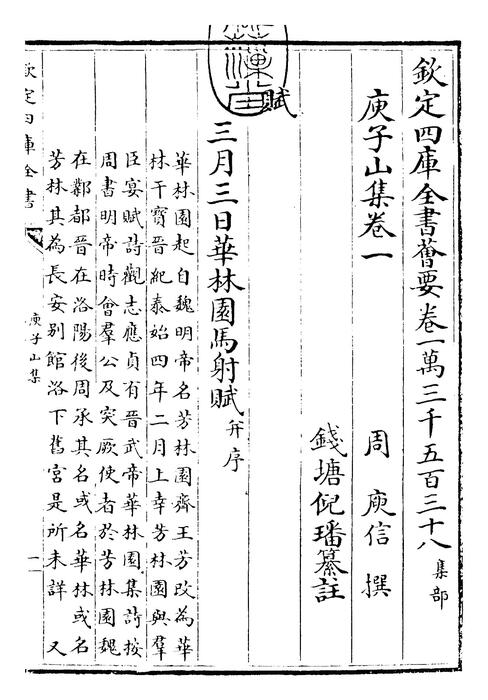 欽定四庫全書薈要卷一萬三千五百三十八 集部
庾子山集卷一
周 庾信 撰
錢塘倪璠纂註
賦
三月三日華林園馬射賦 并序
華林園起自魏明帝名芳林園齊王芳改為華
林干寶晉紀泰始四年二月上幸芳林園與羣
臣宴賦詩觀志應貞有晉武帝華林園集詩按
周書明帝時會羣公及突厥使者於芳林園魏
在鄴都晉在洛陽後周承其名或名華林或名
芳林其為長安別館洛下舊宮是所未詳 又
欽定四庫全書
庾子山集
一